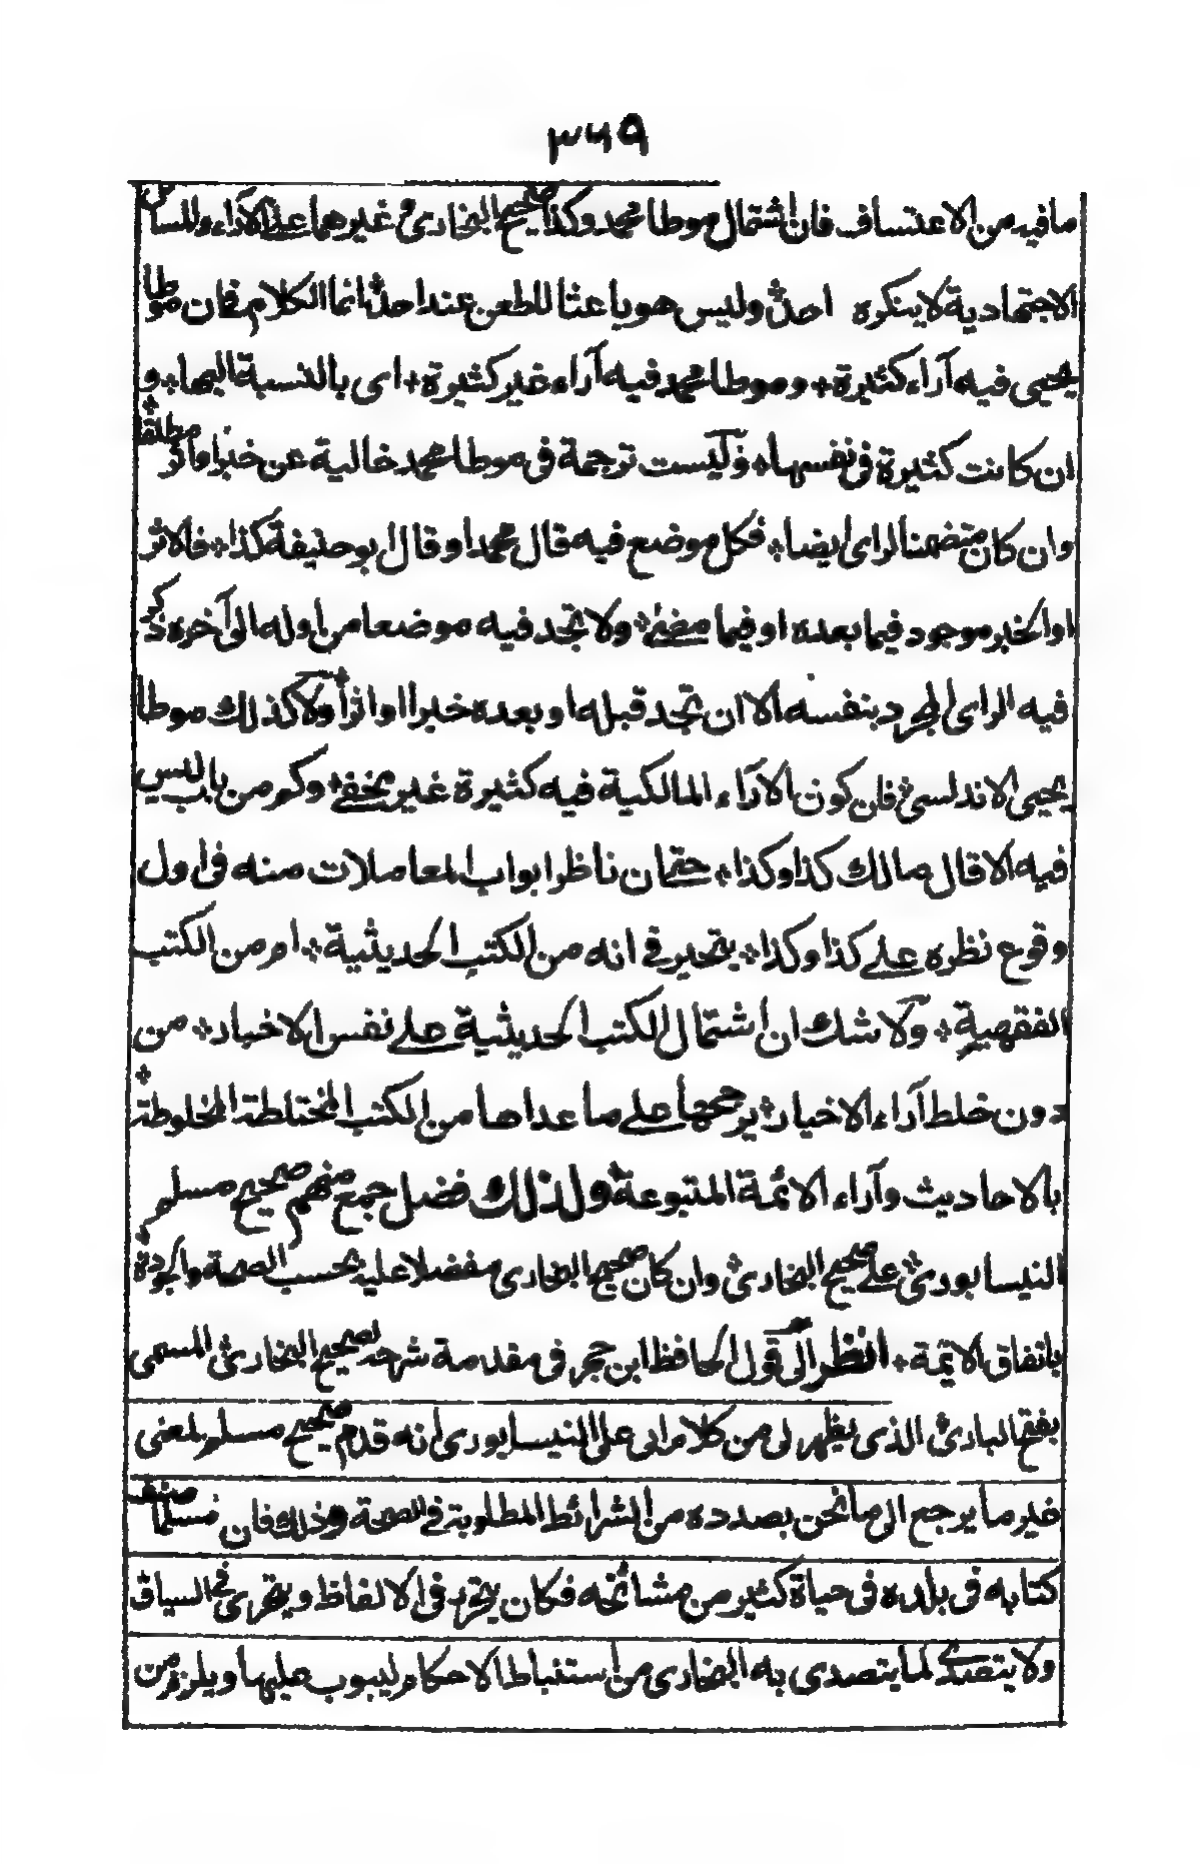 ٣٦٩
ما فيه من الاعتساف فان اشتمال موطا محمد وكذا صحيح البخارى وغيرهما على الآراء والمسائل
الاجتهادية لا ينكره احد وليس هو باعثا للطعن عند احد انما الكلام فان موطا
يحيى فيه آراء كثيرة وموطا محمد فيه آراء غير كثيرة اى بالنسبة اليها و
ان كانت كثيرة فى نفسها وليست ترجمة فى موطا محمد خالية عن خبر او اثر مطلقا
وان كان متضمنا لراى ايضا فكل موضع فيه قال محمد او قال ابو حنيفة كذا فالاثر
او الخبر موجود فيما بعده او فيما مضى ولا تجد فيه موضعا من اوله الى آخره ذكر
فيه الراى المجرد بنفسه الا ان تجد قبله او بعده خبرا او اثرا ولا كذلك موطا
يحيى الاندلسى فان كون الآراء المالكية فيه كثيرة غير مخفى وكم من باب ليس
فيه الا قال مالك كذا وكذا حتى ان ناظر ابواب المعاملات منه فى اول
وقوع نظره على كذا وكذا يتحير فى انه من الكتب الحديثية ام من الكتب
الفقهية ولا شك ان اشتمال الكتب الحديثية على نفس الاخبار من
دون خلط آراء الاخيار يرجحها على ما عداها من الكتب المختلطة المخلوطة
بالاحاديث وآراء الائمة المتبوعة ولذلك فضل جمع منهم صحيح مسلم
النيسابورى على صحيح البخارى وان كان صحيح البخارى مفضلا عليه بحسب الصحة والجودة
باتفاق الائمة انظر الى قول الحافظ ابن حجر فى مقدمة شرحه لصحيح البخارى المسمى
بفتح البارى الذى يظهر لى من كلام ابى على النيسابورى انه قدم صحيح مسلم لمعنى
غير ما يرجع الى ما نحن بصدده من الشرائط المطلوبة فى الصحة وذلك فان مسلما صنف
كتابه فى بلده فى حياة كثير من مشائخه فكان يتحرز فى الالفاظ ويتحرى فى السياق
ولا يتصدى لما يتصدى به البخارى من استنباط الاحكام ليبوب عليها ويلزم من